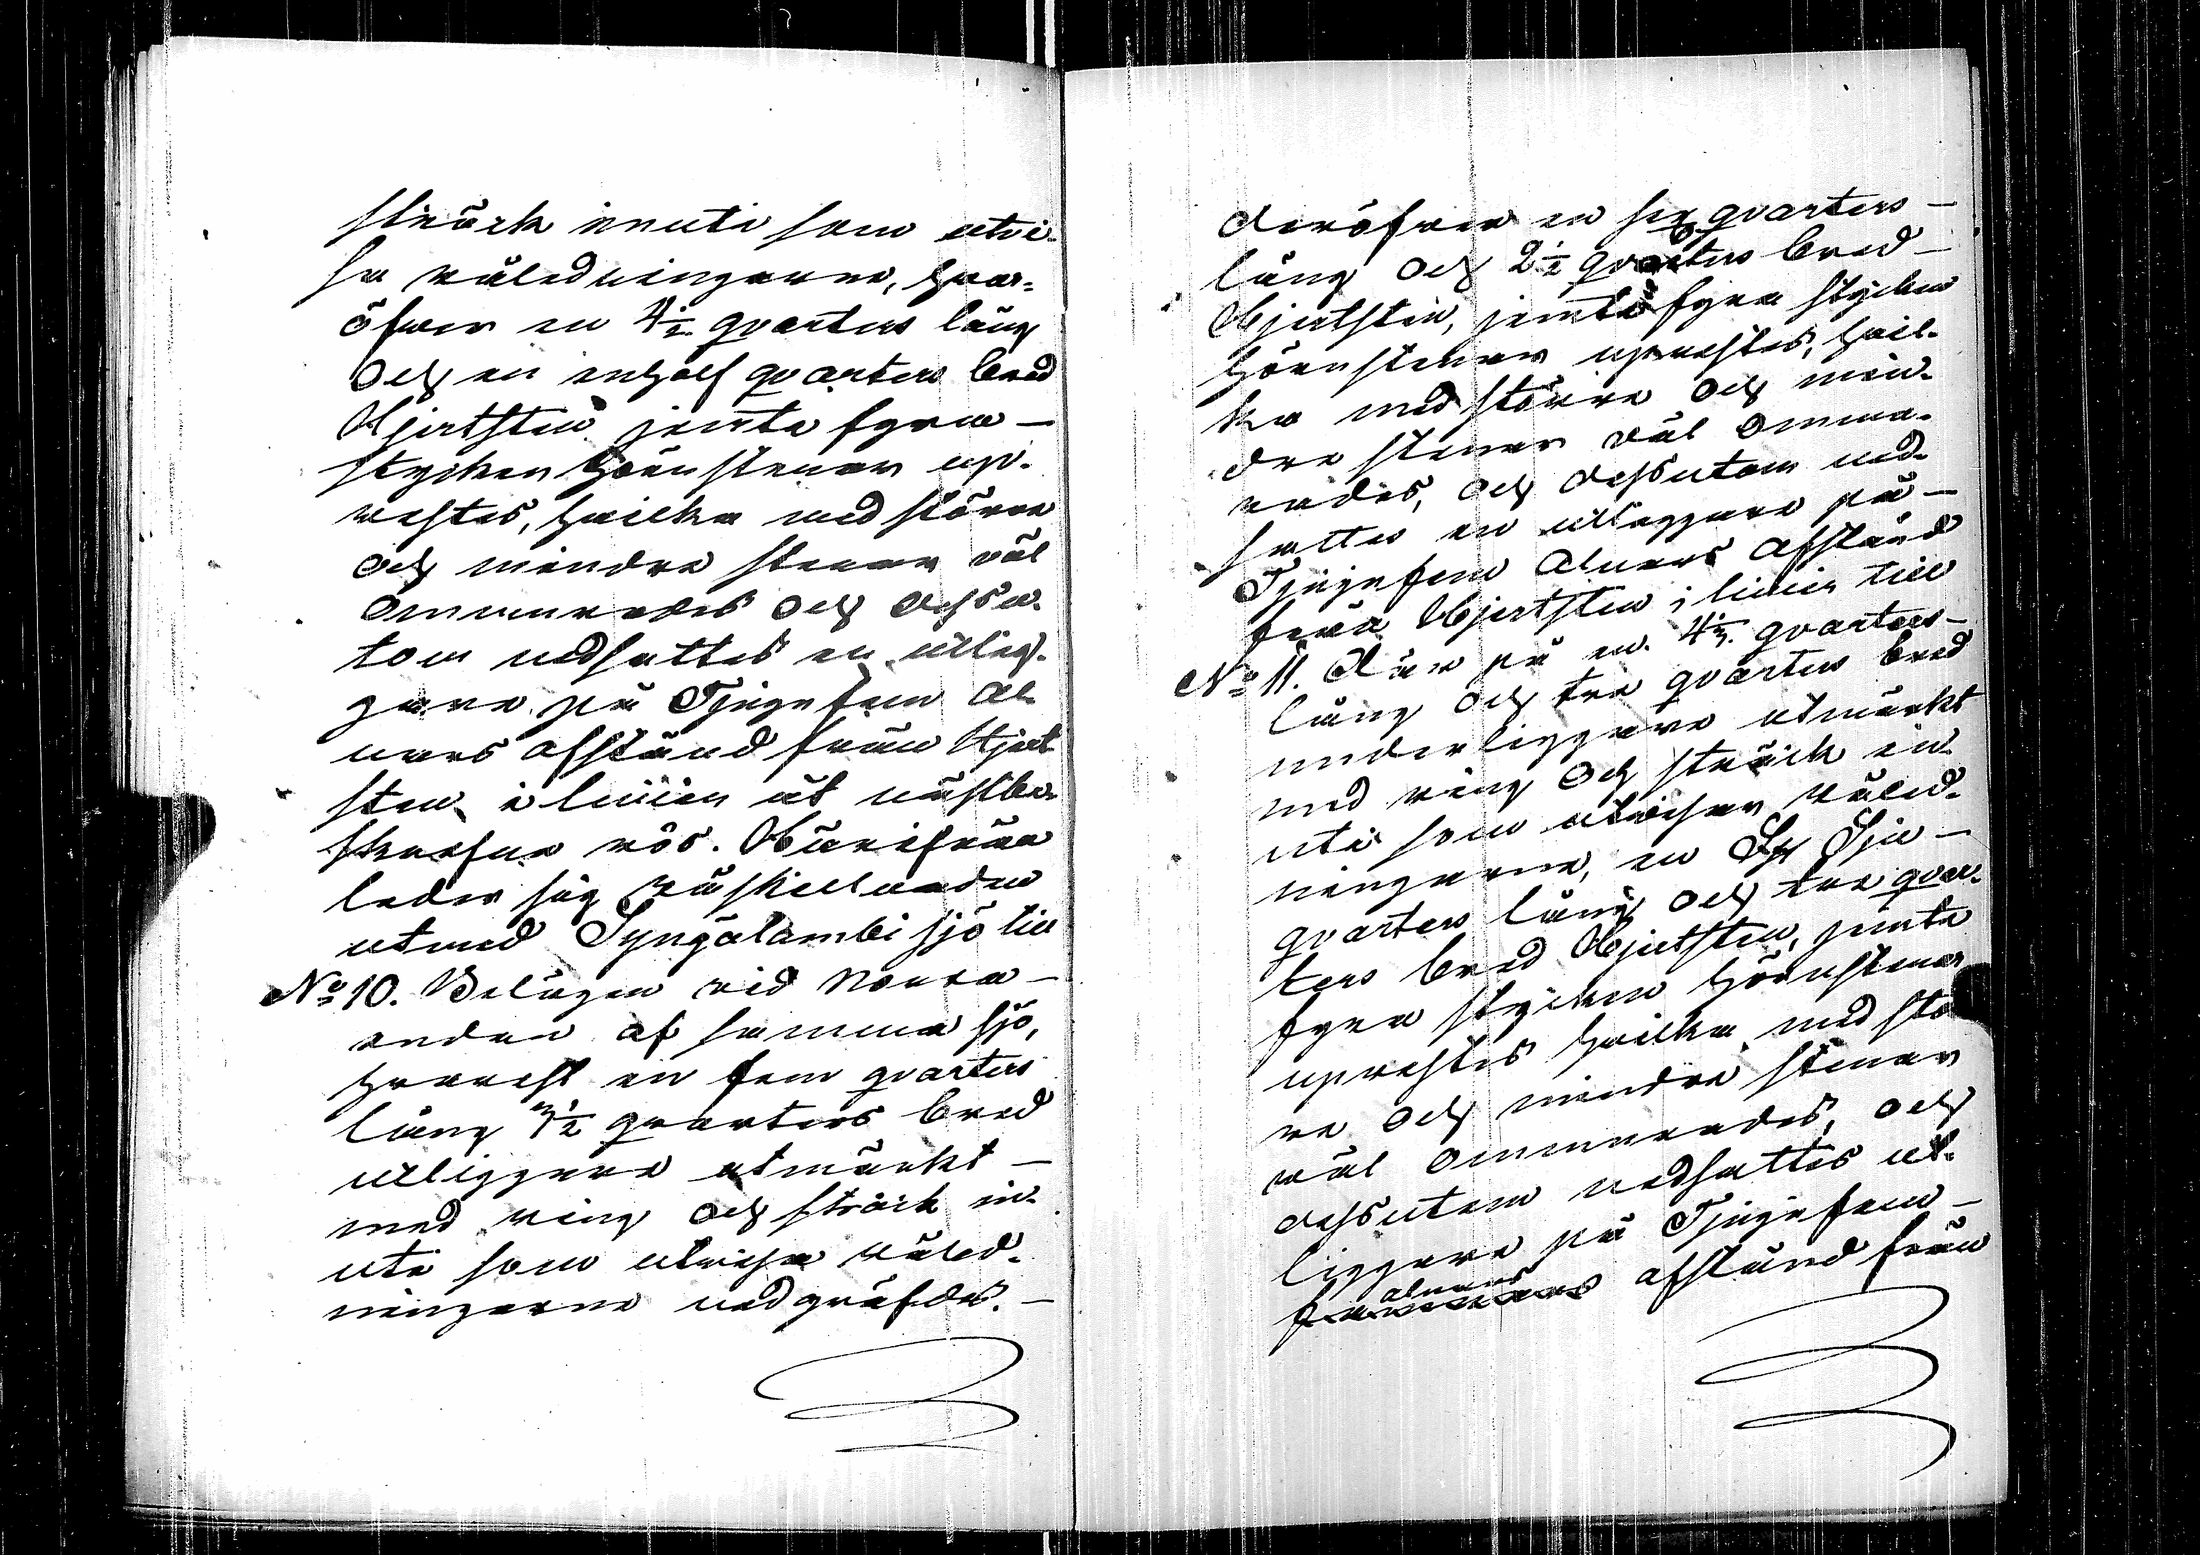 sträck inuti som utvi-
sa råledningarne, hvar-
öfver en 4½ qvarters lång
och en enhalf qvarters bred
Hjertsten jemte fyra —
stycken hörnstenar upp-
restes, hvilka med större
och mindre stenar väl
ommurades och dessu-
tom nedsattes en utlig-
gare på Tjugufem al-
nars afstånd från Hjert
sten i linien åt nästbe-
skrefna rös. Härifrån
leder sig råskillnaden
utmed Syngälambi sjö till
No 10. Belägen vid Norra —
ändan af samma sjö,
hvarest en fem qvarters
lång 3½ qvarters bred
utliggare utmärkt —
med ring och sträck in-
uti som utvisa råled-
ningarne nedgräfdes. —
deröfver en sex qvarters —
lång och 2½ qvarters bred —
Hjertsten, jemte fyra stycken
hörnstenar uprestes, hvil-
ka med större och min-
dre stenar väl ommu-
rades, och dessutom ned-
sattes en utliggare på —
Tjugufem Alnars Afstånd
från Hjertsten i linien till
No 11. Der på en 4½ qvarters —
lång och tre qvarters bred
underliggare utmärkt
med ring och sträck in-
uti som utvisar råled-
ningarne, en Sju —
qvarters lång och tre qvar-
ters bred Hjertsten, jemte
fyra stycken hörnstenar
uprestes hvilka med stö
re och mindre stenar
väl ommurades, och
dessutom nedsattes ut-
liggare på Tjugufem —
alnars afstånd från